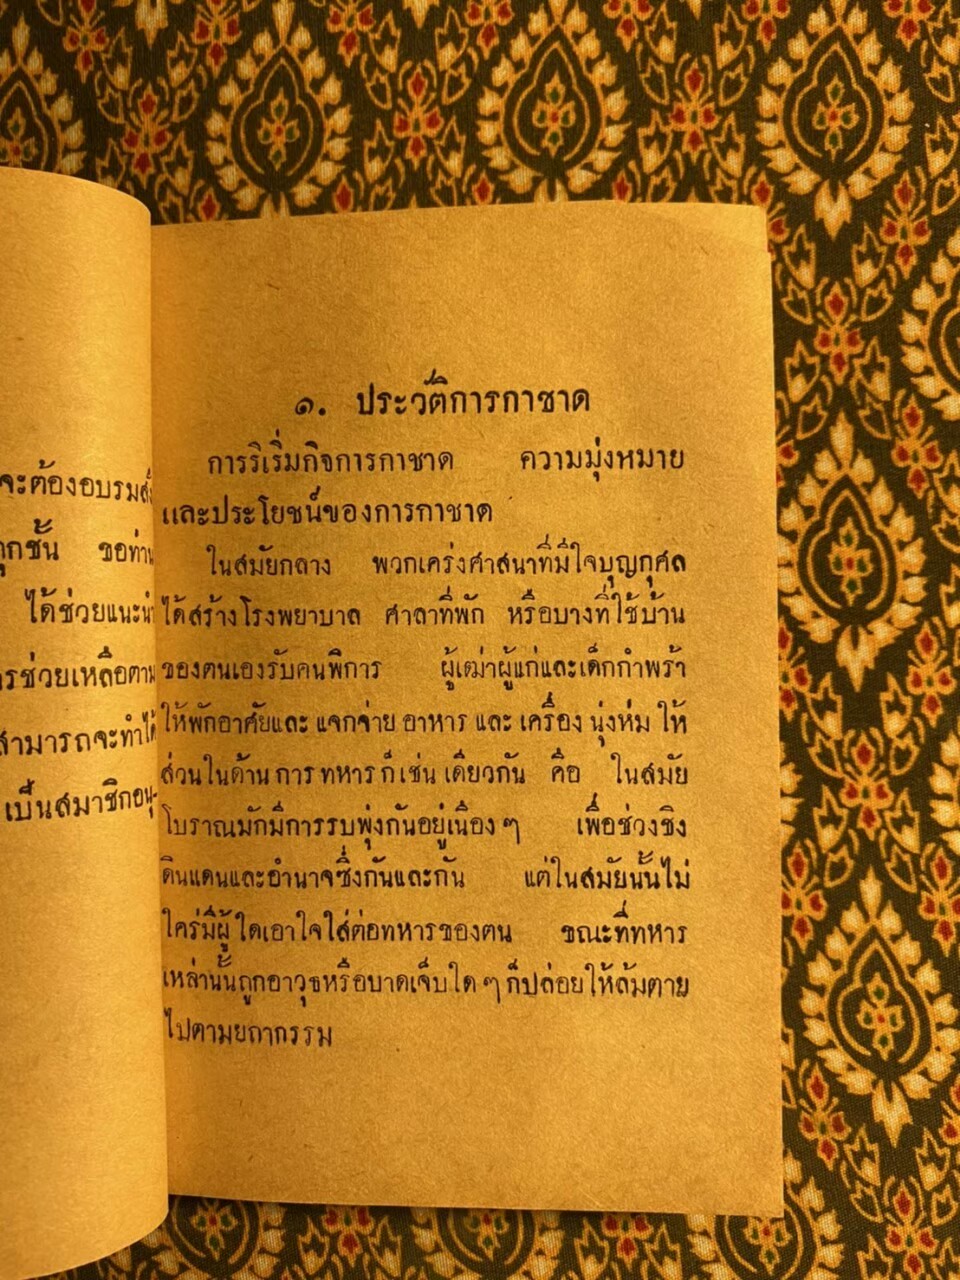 จะต้องอบรมสั่
ทุกชั้น ขอท่าน
ได้ช่วยแนะนำ
การช่วยเหลือตาม
สามารถจะทำได้
เป็นสมาชิกอนุ-
๑. ประวัติการกาชาด
การริเริ่มกิจการกาชาด ความมุ่งหมาย
และประโยชน์ของการกาชาด
ในสมัยกลาง พวกเคร่งศาสนาที่มีใจบุญกุศล
ได้สร้างโรงพยาบาล ศาลาที่พัก หรือบางที่ใช้บ้าน
ของตนเองรับคนพิการ ผู้เฒ่าผู้แก่และเด็กกำพร้า
ให้พักอาศัยและ แจกจ่าย อาหาร และ เครื่อง นุ่งห่ม ให้
ส่วนในด้าน การ ทหาร ก็ เช่น เดียวกัน คือ ในสมัย
โบราณมักมีการรบพุ่งกันอยู่เนือง ๆ เพื่อช่วงชิง
ดินแดนและอำนาจซึ่งกันและกัน แต่ในสมัยนั้นไม่
ใคร่มีผู้ ใดเอาใจใส่ต่อทหารของตน ขณะที่ทหาร
เหล่านั้นถูกอาวุธหรือบาดเจ็บใด ๆ ก็ปล่อยให้ล้มตาย
ไปตามยถากรรม